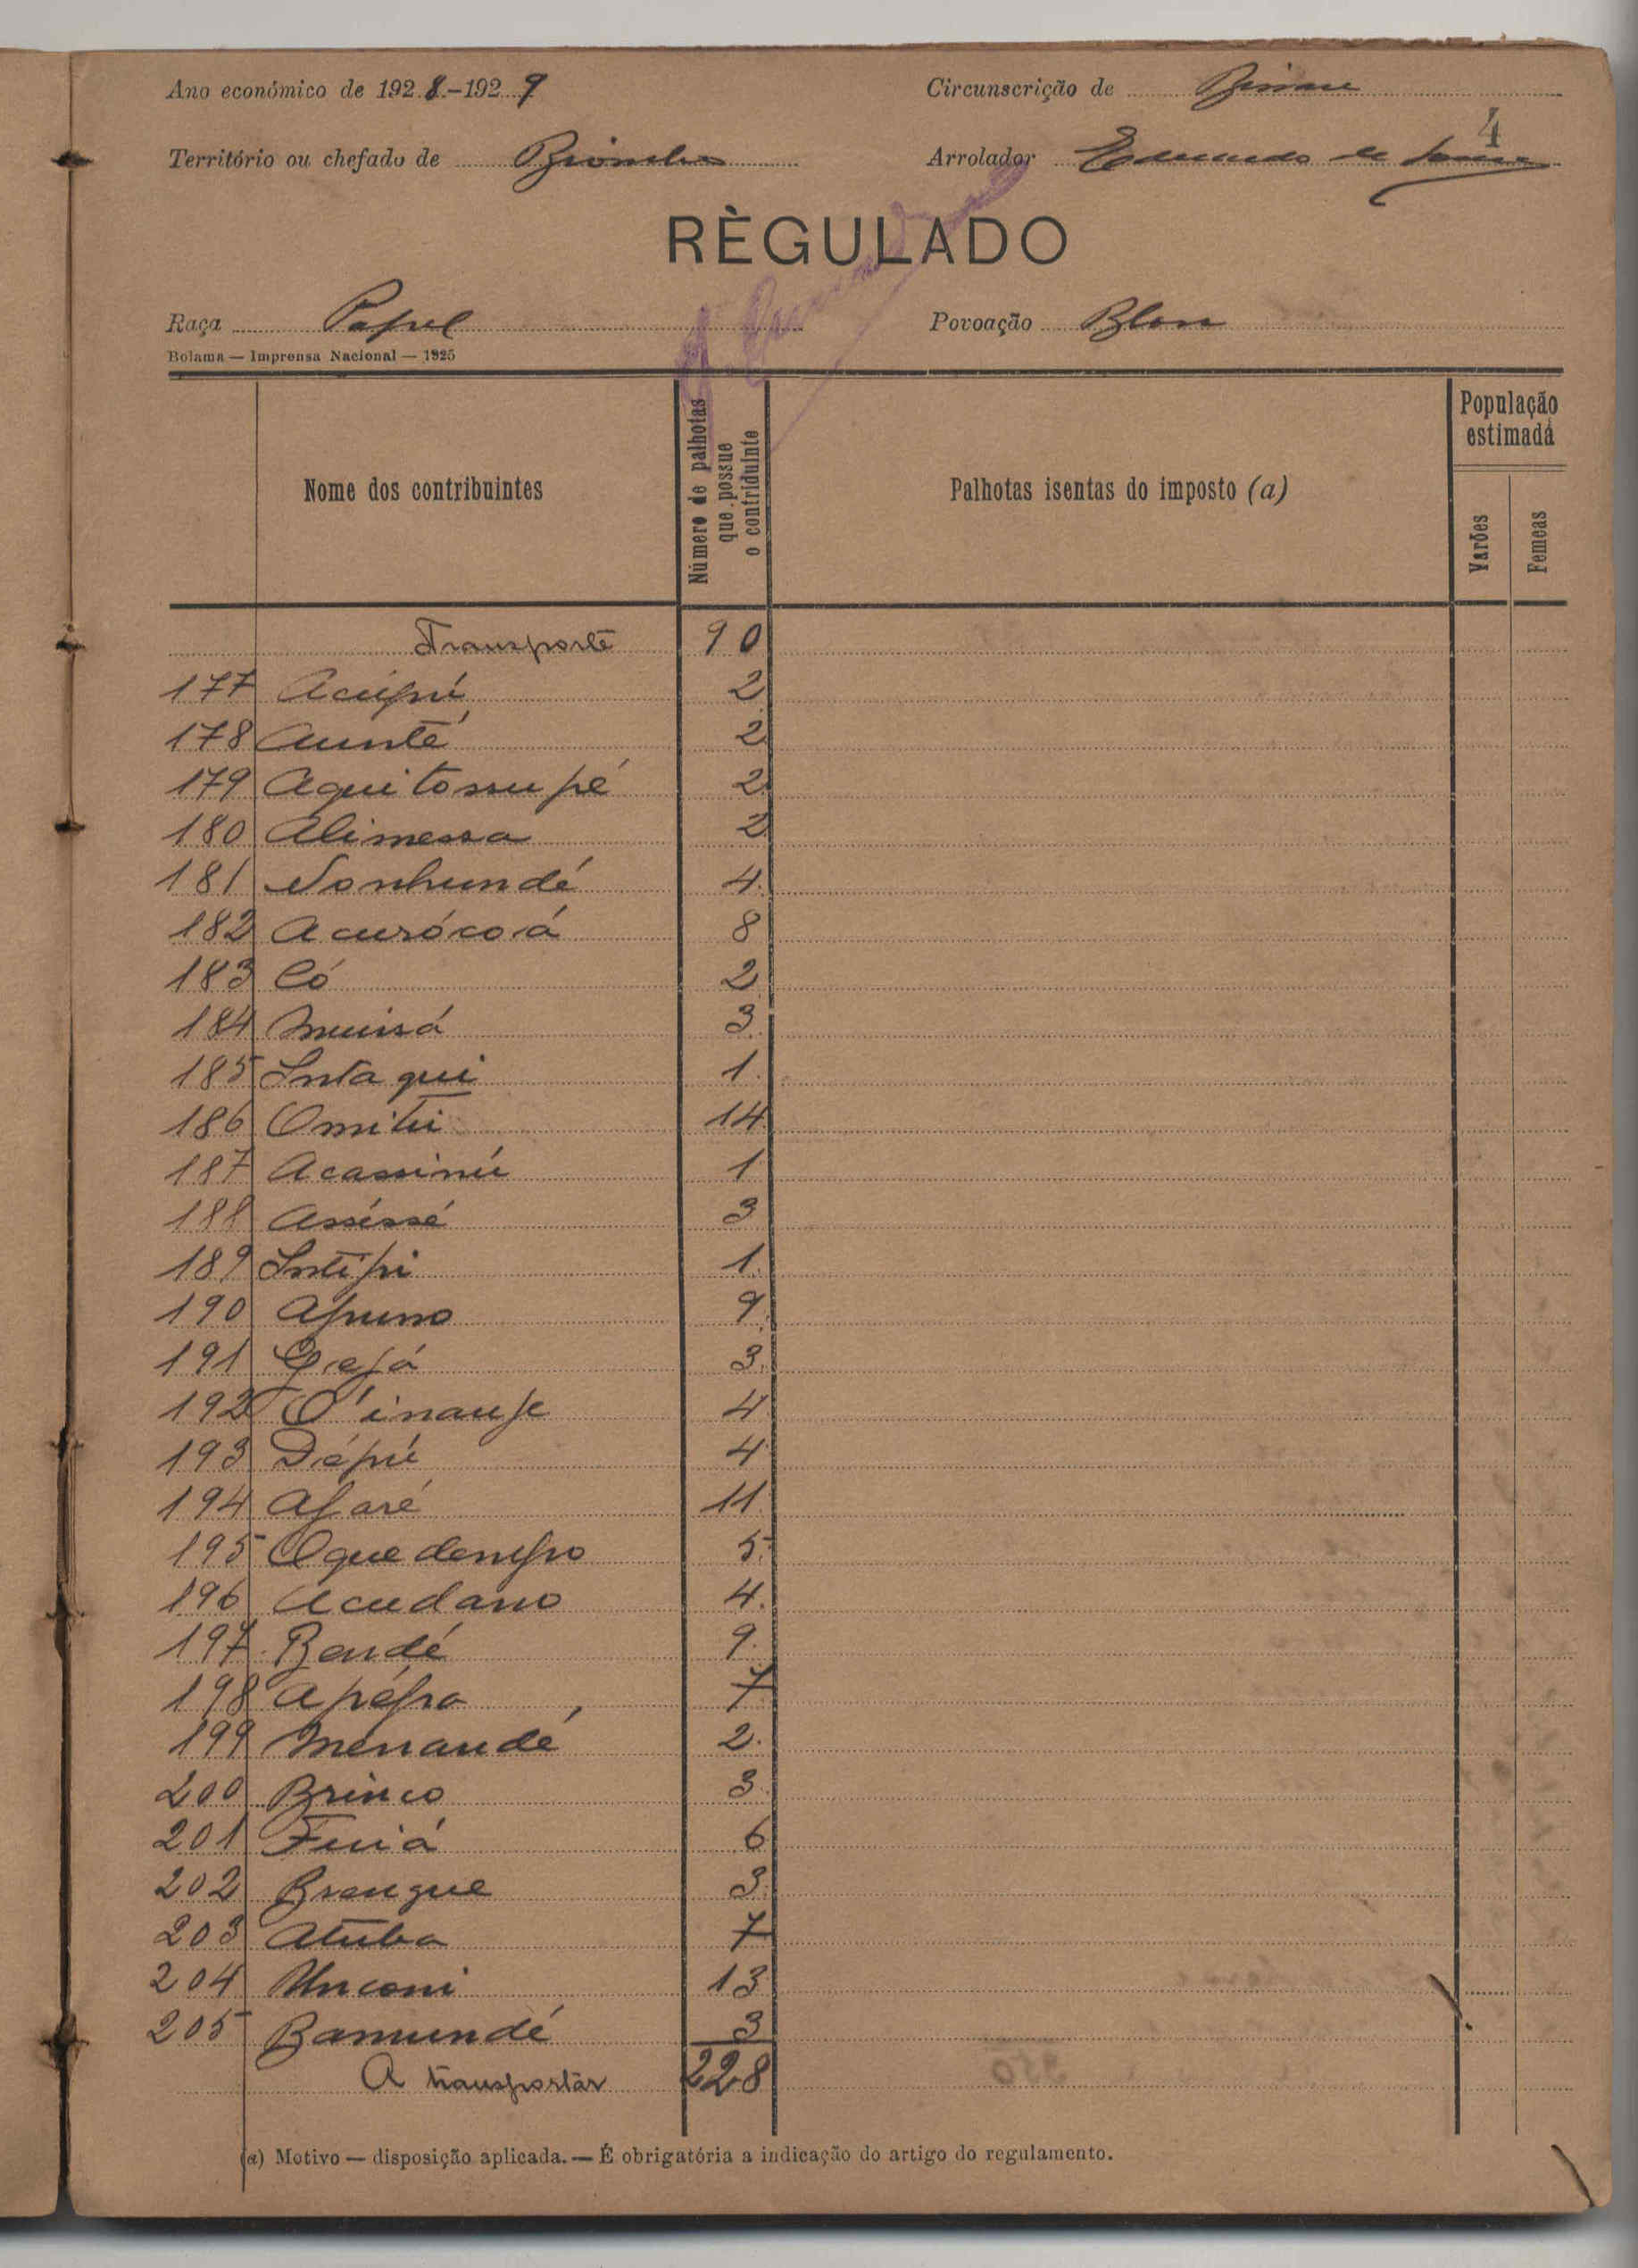 Ano económico de 1928-1929
Circunscrição de
4
Território ou chefado de Biombo
Arrolador
RÈGULADO
Raça Papel
Povoação Blon
Bolama — Imprensa Nacional — 1925
Nome dos contribuintes
Número de palhotas que possue o contriduinte
Palhotas isentas do imposto (a)
População estimada
Varões
Femeas
Transporte 90
177 Acúpú 2
178 Aunté 2
179 Aquitossupé 2
180 Alimessa 2
181 Nonhundé 4
182 Acurócoá 8
183 Có 2
184 Muissá 3
185 Intaqui 1
186 Omitu 14
187 Acassinú 1
188 Assissé 3
189 Intipi 1
190 Apumo 9
191 3
192 4
193 Dépú 4
194 Afaré 11
195 5
196 Acudano 4
197 Bendé 9
198 7
199 Menaudé 2
200 Brinco 3
201 Fuiá 6
202 Brengue 3
203 Atuba 7
204 Unconi 13
205 Bamundé 3
A transportar 228
(a) Motivo — disposição aplicada. — É obrigatória a indicação do artigo do regulamento.